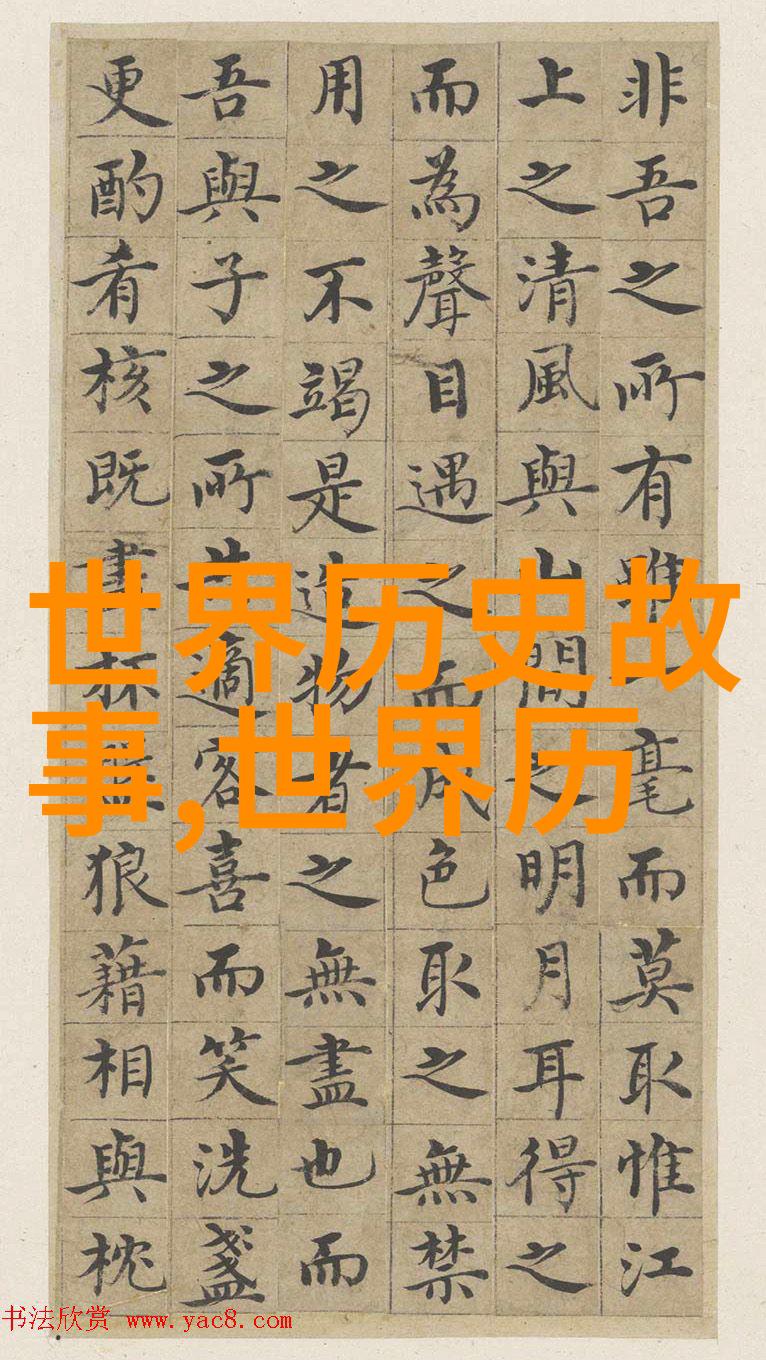 非吾之所有雖一毫而莫取惟江
上之清風與山間之明月耳得之
而為聲目遇之而成色取之無禁
用之不竭是造物者之無盡也而
吾與子之所共適客喜而笑洗盞
更酌肴核既盡杯盤狼藉相與枕
世界历史故
事,世界历
书法欣赏 www.yac8.com